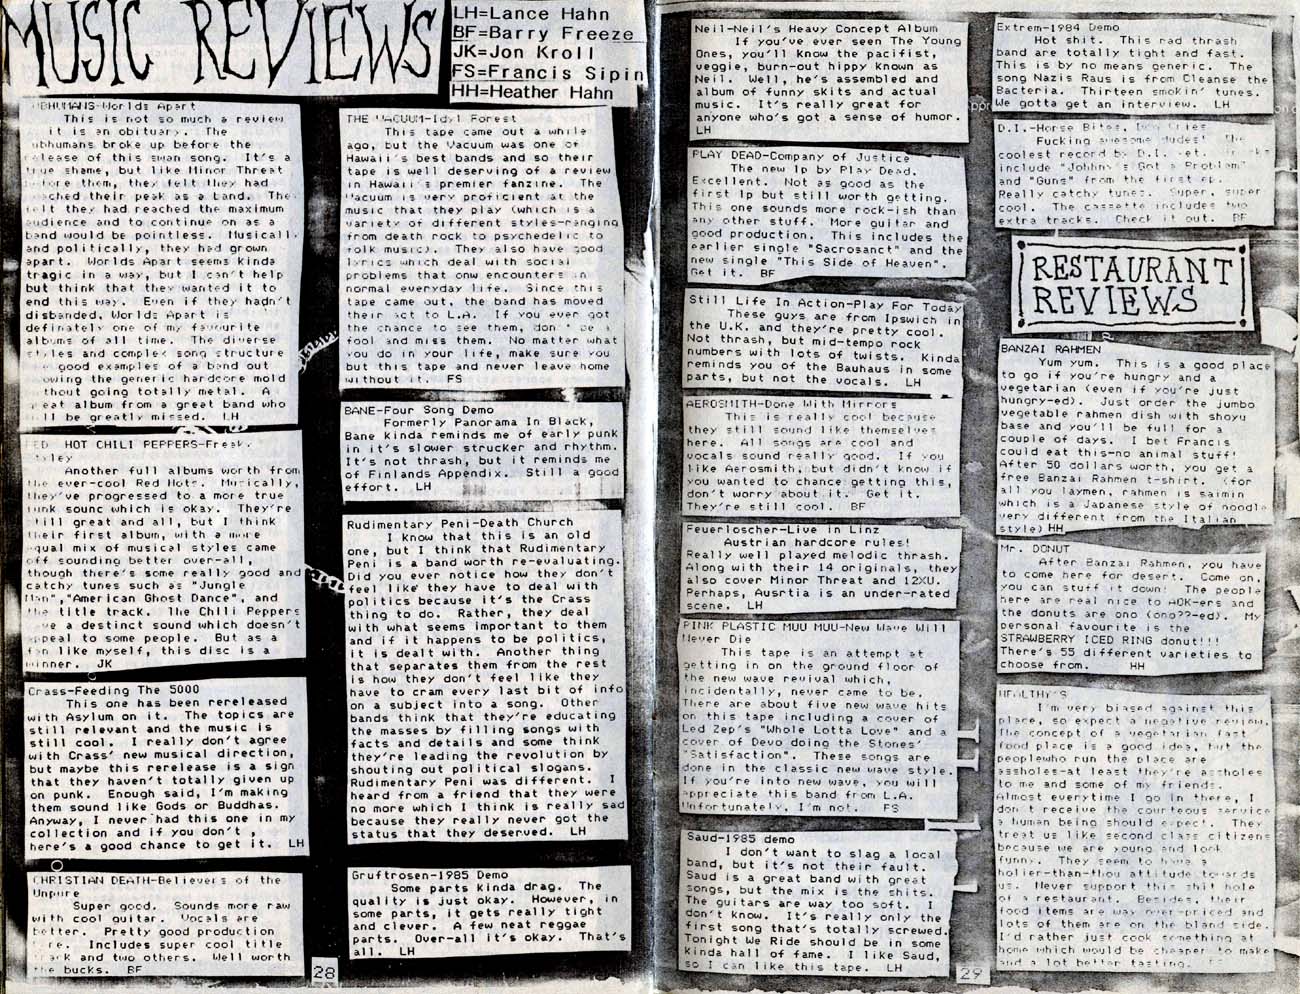 MUSIC REVIEWS
LH=Lance Hahn
BF=Barry Freeze
JK=Jon Kroll
FS=Francis Sipin
HH=Heather Hahn
UBHUMANS-Worlds Apart
This is not so much a review
it is an obituary. The
ubhumans broke up before the
release of this swan song. It's a
true shame, but like Minor Threat
before them, they felt they had
reached their peak as a band. They
felt they had reached the maximum
audience and to continue on as a
band would be pointless. Musically
and politically, they had grown
apart. Worlds Apart seems kinda
tragic in a way, but I can't help
but think that they wanted it to
end this way. Even if they hadn't
disbanded, Worlds Apart is
definately one of my favourite
albums of all time. The diverse
styles and complex song structure
good examples of a band out
owing the generic hardcore mold
thout going totally metal. A
reat album from a great band who
ll be greatly missed. LH
ED HOT CHILI PEPPERS-Freak
tyley
Another full albums worth from
the ever-cool Red Hots. Musically,
they've progressed to a more true
funk sound which is okay. They're
till great and all, but I think
their first album, with a more
equal mix of musical styles came
off sounding better over-all,
though there's some really good and
catchy tunes such as "Jungle
Man","American Ghost Dance", and
the title track. The Chili Peppers
ve a distinct sound which doesn't
appeal to some people. But as a
fan like myself, this disc is a
winner. JK
Crass-Feeding The 5000
This one has been rereleased
with Asylum on it. The topics are
still relevant and the music is
still cool. I really don't agree
with Crass' new musical direction,
but maybe this rerelease is a sign
that they haven't totally given up
on punk. Enough said, I'm making
them sound like Gods or Buddhas.
Anyway, I never had this one in my
collection and if you don't ,
here's a good chance to get it. LH
CHRISTIAN DEATH-Believers of the
Unpure
Super good. Sounds more raw
with cool guitar. Vocals are
better. Pretty good production
re. Includes super cool title
track and two others. Well worth
the bucks. BF
THE VACUUM-Idyl Forest
This tape came out a while
ago, but the Vacuum was one of
Hawaii's best bands and so their
tape is well deserving of a review
in Hawaii's premier fanzine. The
Vacuum is very proficient at the
music that they play (which is a
variety of different styles-ranging
from death rock to psychedelic to
folk music). They also have good
lyrics which deal with social
problems that onw encounters in
normal everyday life. Since this
tape came out, the band has moved
their act to L.A. If you ever got
the chance to see them, don't be a
fool and miss them. No matter what
you do in your life, make sure you
but this tape and never leave home
without it. FS
BANE-Four Song Demo
Formerly Panorama In Black,
Bane kinda reminds me of early punk
in it's slower strucker and rhythm.
It's not thrash, but it reminds me
of Finlands Appendix. Still a good
effort. LH
Rudimentary Peni-Death Church
I know that this is an old
one, but I think that Rudimentary
Peni is a band worth re-evaluating.
Did you ever notice how they don't
feel like they have to deal with
politics because it's the Crass
thing to do. Rather, they deal
with what seems important to them
and if it happens to be politics,
it is dealt with. Another thing
that separates them from the rest
is how they don't feel like they
have to cram every last bit of info
on a subject into a song. Other
bands think that they're educating
the masses by filling songs with
facts and details and some think
they're leading the revolution by
shouting out political slogans.
Rudimentary Peni was different. I
heard from a friend that they were
no more which I think is really sad
because they really never got the
status that they deserved. LH
Gruftrosen-1985 Demo
Some parts kinda drag. The
quality is just okay. However, in
some parts, it gets really tight
and clever. A few neat reggae
parts. Over-all it's okay. That's
all. LH
28
Neil-Neil's Heavy Concept Album
If you've ever seen The Young
Ones, you'll know the pacifist,
veggie, burn-out hippy known as
Neil. Well, he's assembled and
album of funny skits and actual
music. It's really great for
anyone who's got a sense of humor.
LH
PLAY DEAD-Company of Justice
The new lp by Play Dead.
Excellent. Not as good as the
first lp but still worth getting.
This one sounds more rock-ish than
any other stuff. More guitar and
good production. This includes the
earlier single "Sacrosanct" and the
new single "This Side of Heaven".
Get it. BF
Still Life In Action-Play For Today
These guys are from Ipswich in
the U.K. and they're pretty cool.
Not thrash, but mid-tempo rock
numbers with lots of twists. Kinda
reminds you of the Bauhaus in some
parts, but not the vocals. LH
AEROSMITH-Done With Mirrors
This is really cool because
they still sound like themselves
here. All songs are cool and
vocals sound really good. If you
like Aerosmith, but didn't know if
you wanted to chance getting this,
don't worry about it. Get it.
They're still cool. BF
Feuerloscher-Live in Linz
Austrian hardcore rules!
Really well played melodic thrash.
Along with their 14 originals, they
also cover Minor Threat and 12XU.
Perhaps, Ausrtia is an under-rated
scene. LH
PINK PLASTIC MUU MUU-New Wave Will
Never Die
This tape is an attempt at
getting in on the ground floor of
the new wave revival which,
incidentally, never came to be.
There are about five new wave hits
on this tape including a cover of
Led Zep's "Whole Lotta Love" and a
cover of Devo doing the Stones'
"Satisfaction". These songs are
done in the classic new wave style.
If you're into new wave, you will
appreciate this band from L.A.
Unfortunately, I'm not. FS
Saud-1985 demo
I don't want to slag a local
band, but it's not their fault.
Saud is a great band with great
songs, but the mix is the shits.
The guitars are way too soft. I
don't know. It's really only the
first song that's totally screwed.
Tonight We Ride should be in some
kinda hall of fame. I like Saud,
so I can like this tape. LH
29
Extrem-1984 Demo
Hot shit. This rad thrash
band are totally tight and fast.
This is by no means generic. The
song Nazis Raus is from Cleanse the
Bacteria. Thirteen smokin' tunes.
We gotta get an interview. LH
D.I.-Horse Bites, Dog Cries
Fucking awesome dudes! The
coolest record by D.I. yet.
include "Johnny's Got a Problem"
and "Guns" from the first ep.
Really catchy tunes. Super, super
cool. The cassette includes two
extra tracks. Check it out. BF
RESTAURANT
REVIEWS
BANZAI RAHMEN
Yum yum. This is a good place
to go if you're hungry and a
vegetarian (even if you're just
hungry-ed). Just order the jumbo
vegetable rahmen dish with shoyu
base and you'll be full for a
couple of days. I bet Francis
could eat this-no animal stuff!
After 50 dollars worth, you get a
free Banzai Rahmen t-shirt. (for
all you laymen, rahmen is saimin
which is a Japanese style of noodle
very different from the Italian
style) HH
Mr. DONUT
After Banzai Rahmen, you have
to come here for desert. Come on,
you can stuff it down! The people
here are real nice to AOK-ers and
the donuts are ono (ono??-ed). My
personal favourite is the
STRAWBERRY ICED RING donut!!!
There's 55 different varieties to
choose from. HH
HEALTHY'S
I'm very biased against this
place, so expect a negative review.
The concept of a vegetarian fast
food place is a good idea, but the
peoplewho run the place are
assholes-at least they're assholes
to me and some of my friends.
Almost everytime I go in there, I
don't receive the courteous service
a human being should expect. They
treat us like second class citizens
because we are young and look
funny. They seem to have a
holier-than-thou attitude towards
us. Never support this shit hole
of a restaurant. Besides, their
food items are way over-priced and
lots of them are on the bland side.
I'd rather just cook something at
home which would be cheaper to make
and a lot better tasting.